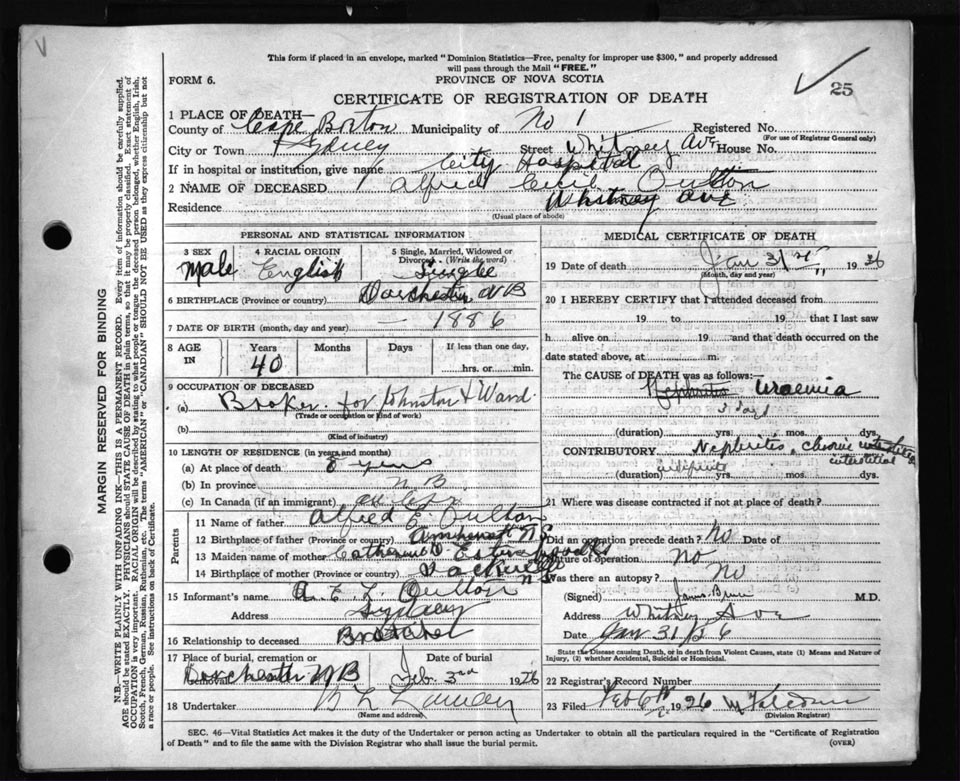 V
25
This form if placed in an envelope, marked "Dominion Statistics—Free, penalty for improper use $300," and properly addressed
will pass through the Mail "FREE."
FORM 6.
PROVINCE OF NOVA SCOTIA
CERTIFICATE OF REGISTRATION OF DEATH
1 PLACE OF DEATH—
County of Cape Breton Municipality of No 1 Registered No.
(For use of Registrar General only)
City or Town Sydney Street Whitney Ave House No.
If in hospital or institution, give name City Hospital
2 NAME OF DECEASED Alfred Cecil Oulton
Residence Whitney Ave
(Usual place of abode)
PERSONAL AND STATISTICAL INFORMATION
3 SEX 4 RACIAL ORIGIN 5 Single, Married, Widowed or
Divorced (Write the word)
Male English Single
6 BIRTHPLACE (Province or country) Dorchester NB
7 DATE OF BIRTH (month, day and year) — 1886
8 AGE IN Years Months Days If less than one day,
40 hrs. or min.
9 OCCUPATION OF DECEASED
(a) Broker for Johnston & Ward
(Trade or occupation or kind of work)
(b)
(Kind of industry)
10 LENGTH OF RESIDENCE (in years and months)
(a) At place of death 8 years
(b) In province N B
(c) In Canada (if an immigrant)
Parents
11 Name of father Alfred E Oulton
12 Birthplace of father (Province or country) Amherst N S
13 Maiden name of mother Estabrooks
14 Birthplace of mother (Province or country) Sackville
15 Informant's name Oulton
Address Sydney
16 Relationship to deceased Brother
17 Place of burial, cremation or removal Date of burial
Dorchester NB Feb. 3rd 1926
18 Undertaker
(Name and address)
MEDICAL CERTIFICATE OF DEATH
19 Date of death Jan 31st 1926
(Month, day and year)
20 I HEREBY CERTIFY that I attended deceased from
19 to 19 that I last saw
h alive on 19 and that death occurred on the
date stated above, at m.
The CAUSE OF DEATH was as follows:—
Nephritis Uraemia
3 days
(duration) yrs. mos. dys.
CONTRIBUTORY Nephritis, chronic
interstitial
(duration) yrs. mos. dys.
21 Where was disease contracted if not at place of death?
Did an operation precede death? No Date of
Nature of operation No
Was there an autopsy? No
(Signed) M.D.
Address Whitney Ave
Date Jan 31/26
State the Disease causing Death, or in death from Violent Causes, state (1) Means and Nature of
Injury, (2) whether Accidental, Suicidal or Homicidal.
22 Registrar's Record Number
23 Filed Feb 6th 1926
(Division Registrar)
SEC. 46—Vital Statistics Act makes it the duty of the Undertaker or person acting as Undertaker to obtain all the particulars required in the "Certificate of Registration
of Death" and to file the same with the Division Registrar who shall issue the burial permit. (OVER)
MARGIN RESERVED FOR BINDING
N.B.—WRITE PLAINLY WITH UNFADING INK—THIS IS A PERMANENT RECORD. Every item of information should be carefully supplied.
AGE should be stated EXACTLY. PHYSICIANS should STATE CAUSE OF DEATH in plain terms, so that it may be properly classified. Exact statement of
OCCUPATION is very important. RACIAL ORIGIN will be described by stating to what people or tongue the deceased person belonged, whether English, Irish,
Scotch, French, German, Russian, Ruthenian, etc. The terms "AMERICAN" or "CANADIAN" SHOULD NOT BE USED as they express citizenship but not
a race or people. See instructions on back of Certificate.